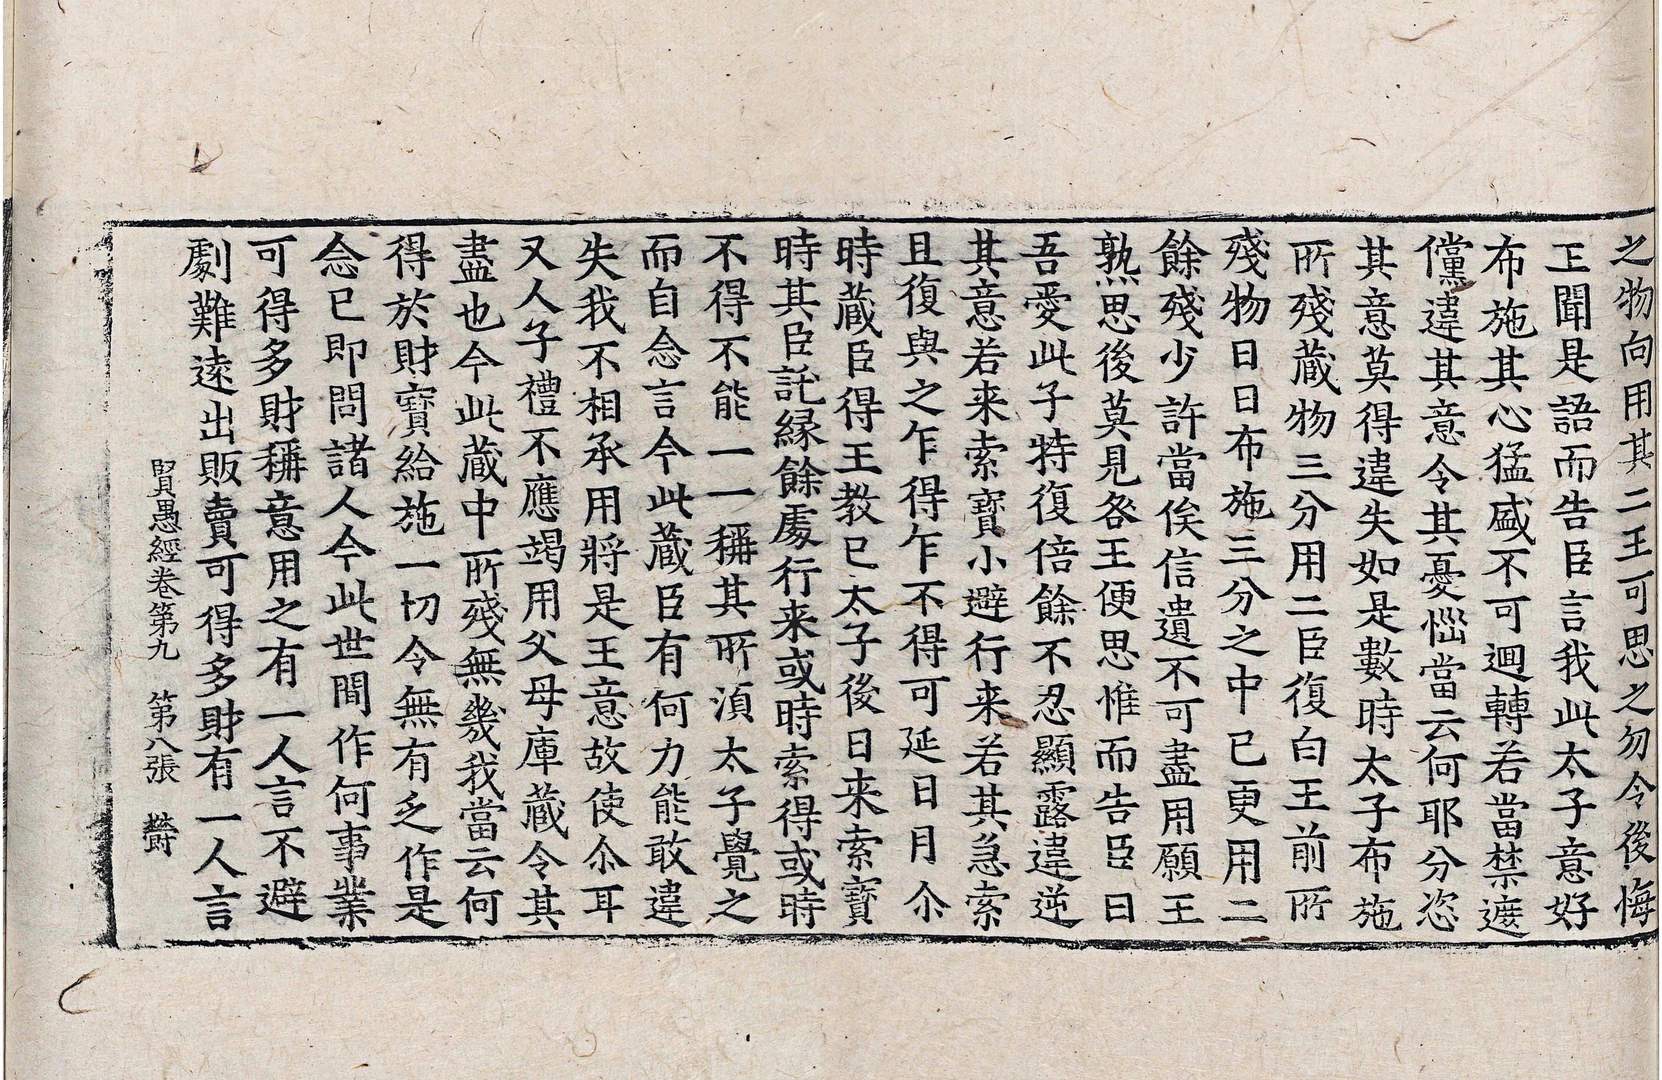 之物向用其二王可思之勿令後悔
王聞是語而告臣言我此太子意好
布施其心猛盛不可迴轉若當禁遮
儻違其意令其憂惱當云何耶分恣
其意莫得違失如是數時太子布施
所殘藏物三分用二臣復白王前所
殘物日日布施三分之中已更用二
餘殘少許當俟信遺不可盡用願王
熟思後莫見咎王便思惟而告臣曰
吾愛此子特復倍餘不忍顯露違逆
其意若来索寶小避行来若其急索
且復與之乍得乍不得可延日月尒
時藏臣得王教已太子後日来索寶
時其臣託緣餘處行来或時索得或時
不得不能一一稱其所湏太子覺之
而自念言今此藏臣有何力能敢違
失我不相承用將是王意故使尒耳
又人子禮不應竭用父母庫藏令其
盡也今此藏中所殘無幾我當云何
得於財寶給施一切令無有乏作是
念已即問諸人今此世間作何事業
可得多財稱意用之有一人言不避
劇難遠出販賣可得多財有一人言
賢愚經卷第九　第八張　欝